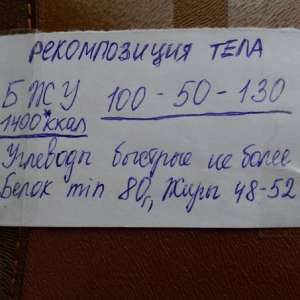 РЕКОМПОЗИЦИЯ ТЕЛА
БЖУ 100-50-130
1400 ккал
Углеводы быстрые не более
Белок min 80г, Жиры 48-52